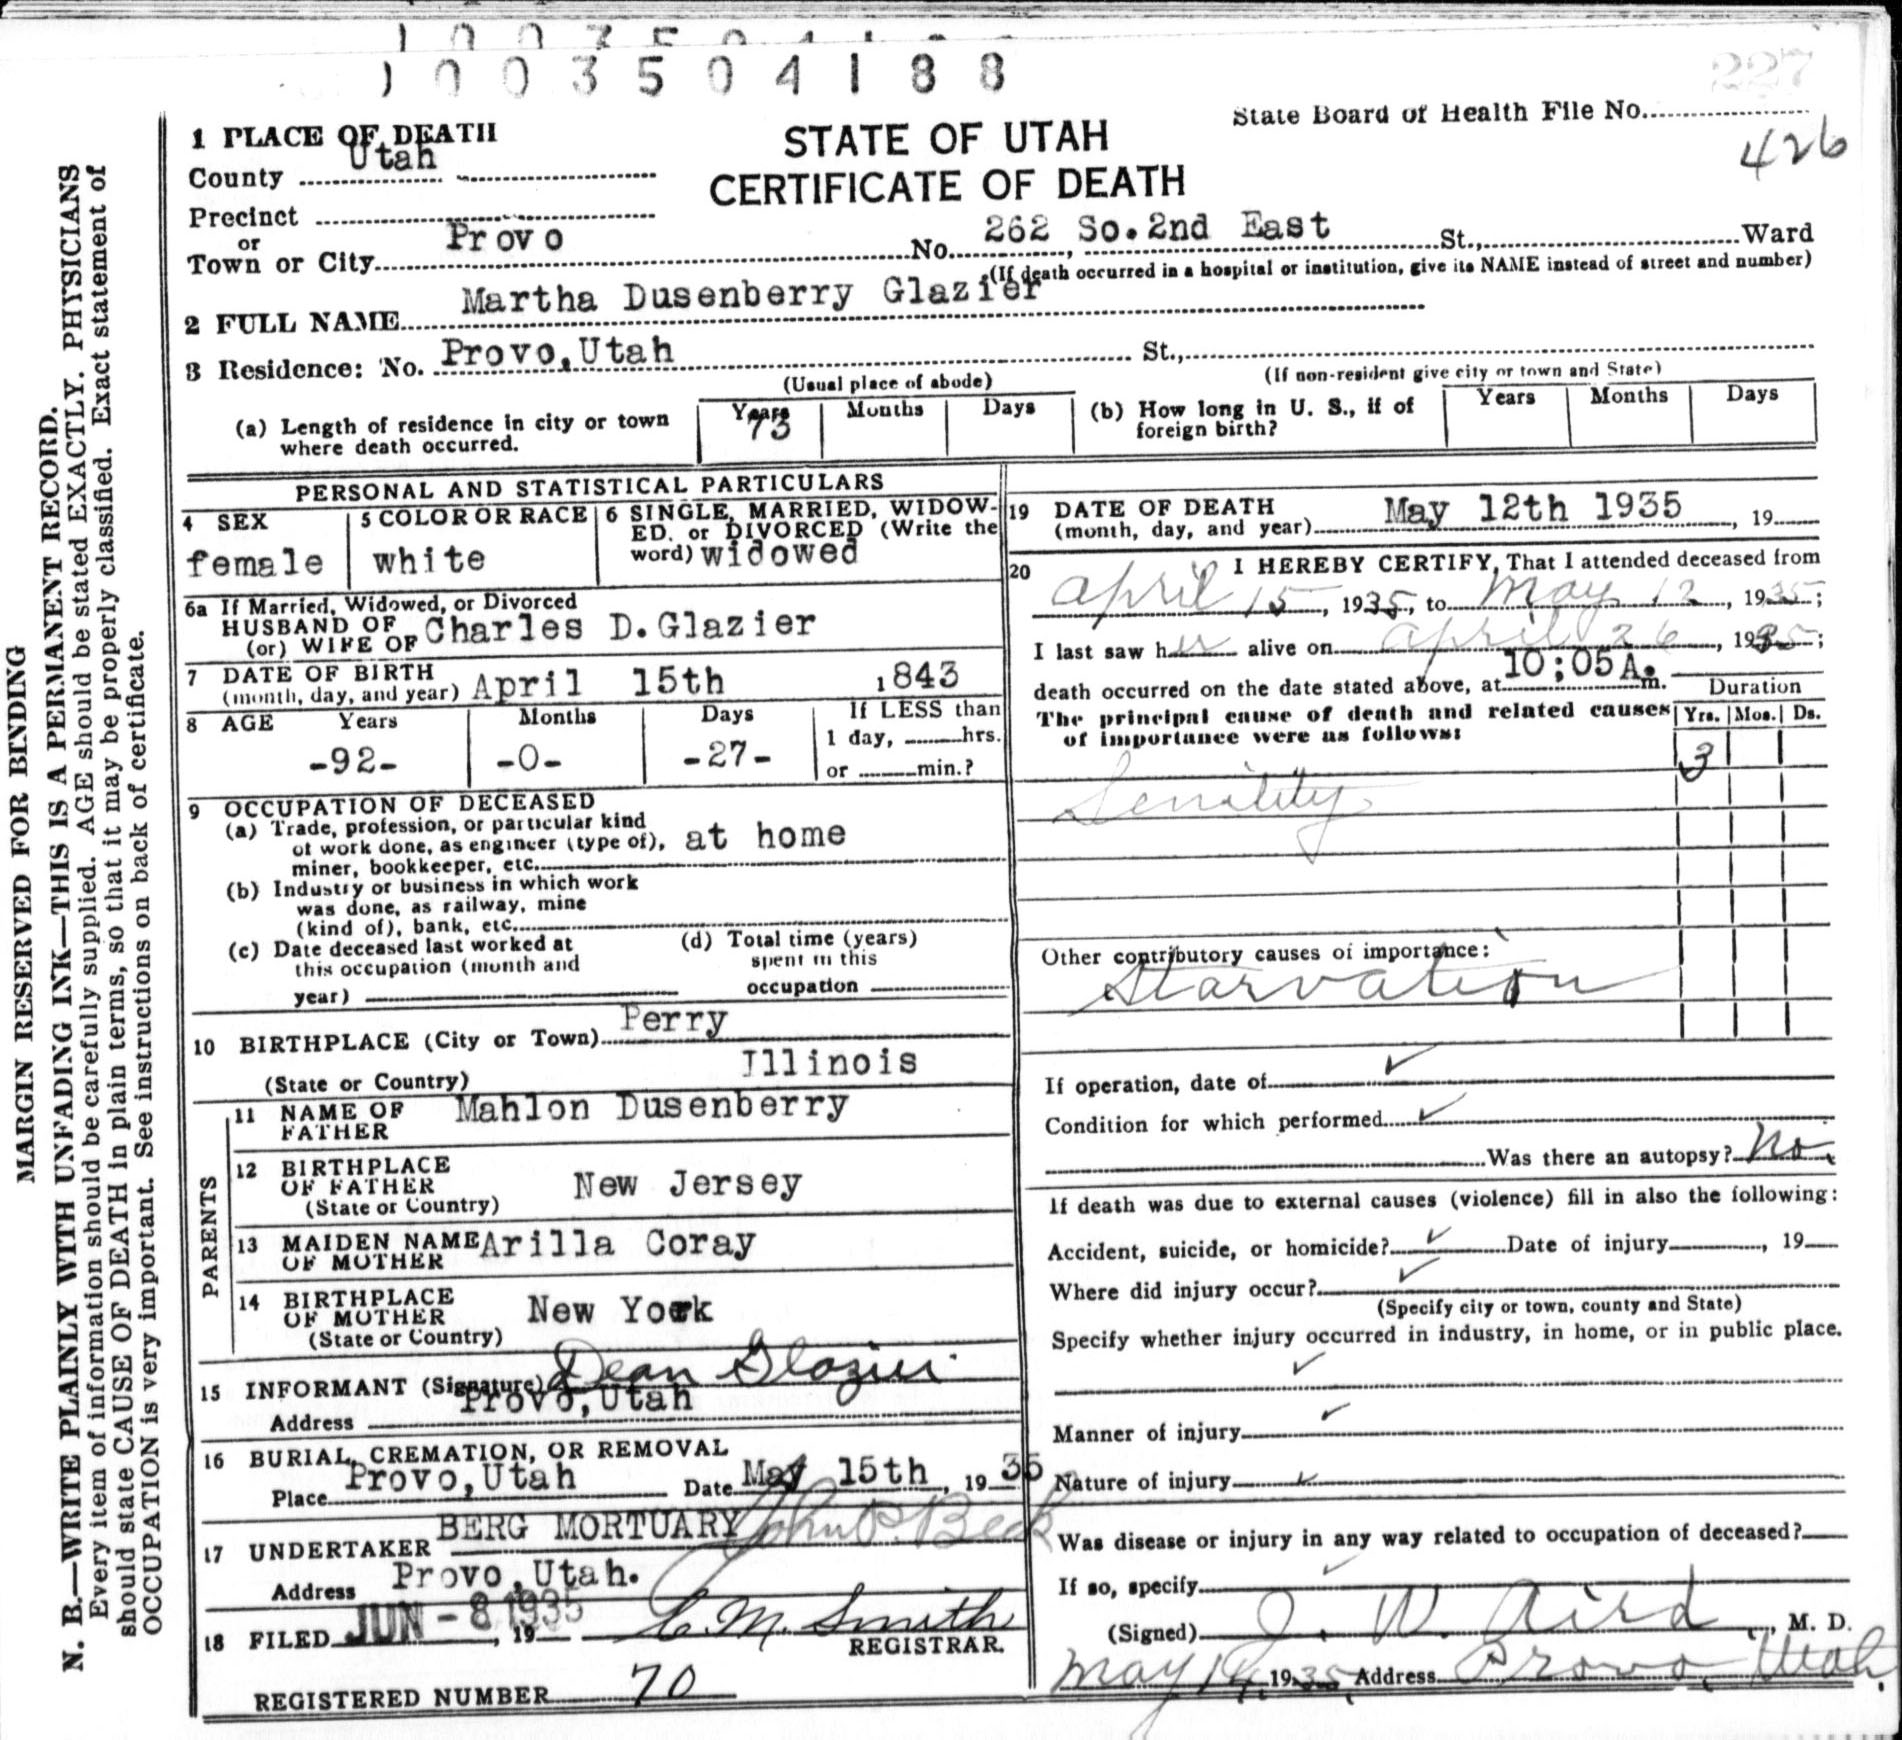 1003504188
227
State Board of Health File No.
426
STATE OF UTAH
CERTIFICATE OF DEATH
1 PLACE OF DEATH
County Utah
Precinct
or
Town or City Provo No. 262 So. 2nd East St., Ward
(If death occurred in a hospital or institution, give its NAME instead of street and number)
2 FULL NAME Martha Dusenberry Glazier
3 Residence: No. Provo, Utah St.,
(Usual place of abode) (If non-resident give city or town and State)
(a) Length of residence in city or town where death occurred. Years 73 Months Days
(b) How long in U. S., if of foreign birth? Years Months Days
PERSONAL AND STATISTICAL PARTICULARS
4 SEX female
5 COLOR OR RACE white
6 SINGLE, MARRIED, WIDOW-
ED, or DIVORCED (Write the
word) widowed
6a If Married, Widowed, or Divorced
HUSBAND OF
(or) WIFE OF Charles D. Glazier
7 DATE OF BIRTH
(month, day, and year) April 15th 1843
8 AGE Years Months Days If LESS than
1 day, hrs.
-92- -0- -27- or min.?
9 OCCUPATION OF DECEASED
(a) Trade, profession, or particular kind
of work done, as engineer (type of), at home
miner, bookkeeper, etc.
(b) Industry or business in which work
was done, as railway, mine
(kind of), bank, etc.
(c) Date deceased last worked at
this occupation (month and
year)
(d) Total time (years)
spent in this
occupation
10 BIRTHPLACE (City or Town) Perry
(State or Country) Illinois
PARENTS
11 NAME OF
FATHER Mahlon Dusenberry
12 BIRTHPLACE
OF FATHER New Jersey
(State or Country)
13 MAIDEN NAME
OF MOTHER Arilla Coray
14 BIRTHPLACE
OF MOTHER New York
(State or Country)
15 INFORMANT (Signature) Dean Glazier
Address Provo, Utah
16 BURIAL, CREMATION, OR REMOVAL
Place Provo, Utah Date May 15th, 1935
17 UNDERTAKER BERG MORTUARY John P. Beck
Address Provo, Utah.
18 FILED JUN -8 1935, 19 C. M. Smith
REGISTRAR.
REGISTERED NUMBER 70
19 DATE OF DEATH
(month, day, and year) May 12th 1935, 19
20 I HEREBY CERTIFY, That I attended deceased from
April 15, 1935, to May 12, 1935;
I last saw her alive on April 26, 1935;
death occurred on the date stated above, at 10:05 A. m.
The principal cause of death and related causes
of importance were as follows:
Duration
Yrs. Mos. Ds.
3
Senility
Other contributory causes of importance:
Starvation
If operation, date of ✓
Condition for which performed ✓
Was there an autopsy? No
If death was due to external causes (violence) fill in also the following:
Accident, suicide, or homicide? ✓ Date of injury, 19
Where did injury occur? ✓
(Specify city or town, county and State)
Specify whether injury occurred in industry, in home, or in public place.
✓
Manner of injury ✓
Nature of injury ✓
Was disease or injury in any way related to occupation of deceased?
If so, specify ✓
(Signed) J. W. Aird, M. D.
May 14, 1935, Address Provo, Utah.
MARGIN RESERVED FOR BINDING
N. B.—WRITE PLAINLY WITH UNFADING INK—THIS IS A PERMANENT RECORD.
Every item of information should be carefully supplied. AGE should be stated EXACTLY. PHYSICIANS
should state CAUSE OF DEATH in plain terms, so that it may be properly classified. Exact statement of
OCCUPATION is very important. See instructions on back of certificate.